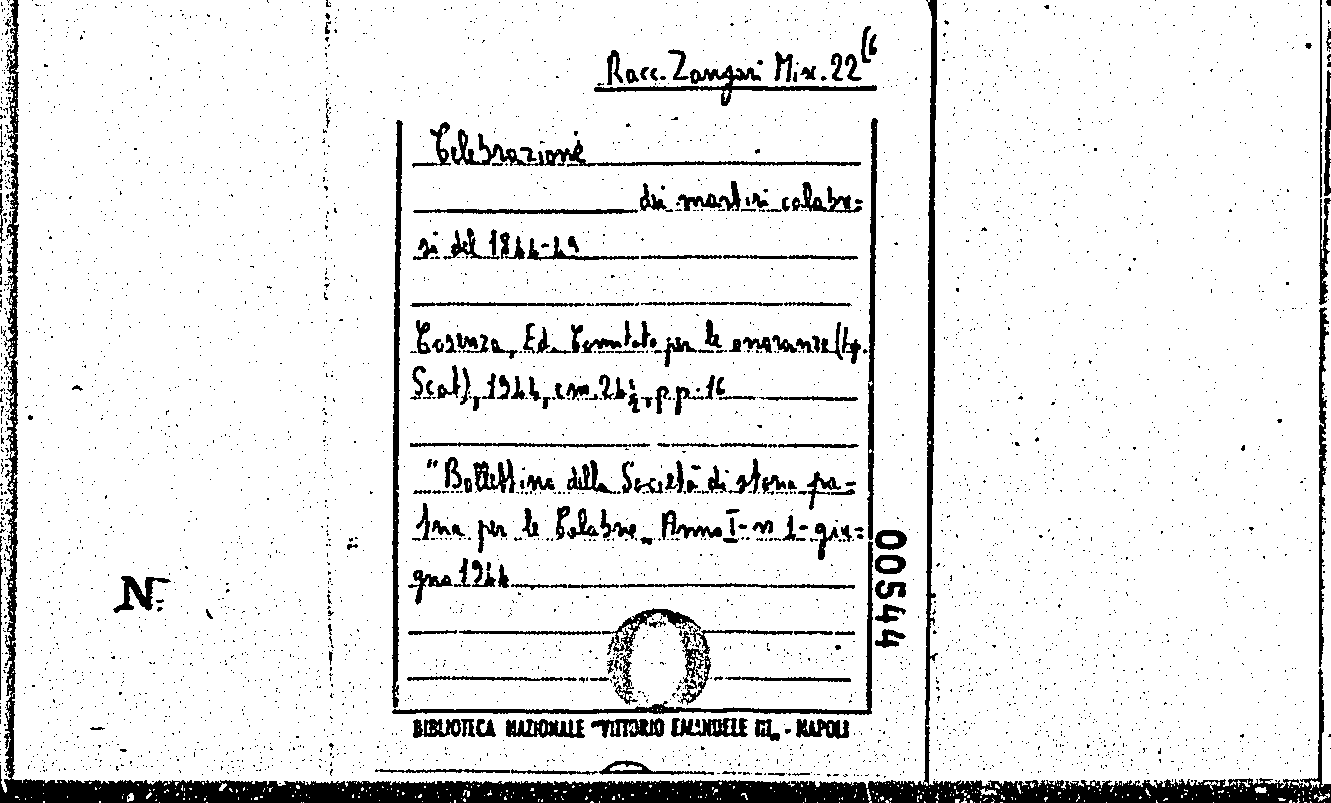 Racc. Zangari Mis. 22(6
Celebrazione
dei martiri calabre=
si del 1844-49
Cosenza, Ed. Comitato per le onoranze (tip.
Scat), 1944, cm. 24½, pp. 16
"Bollettino della Società di storia pa=
tria per le Calabrie„ Anno I - n 1 - giu=
gno 1944
00544
N
BIBLIOTECA NAZIONALE "VITTORIO EMANUELE III„ - NAPOLI